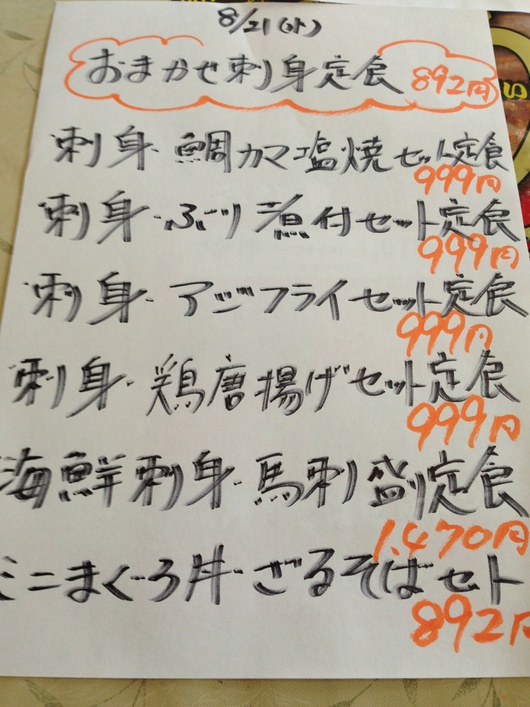 8/21(水)
おまかせ刺身定食 892円
刺身・鯛カマ塩焼セット定食
999円
刺身・ぶり煮付セット定食
999円
刺身・アジフライセット定食
999円
刺身・鶏唐揚げセット定食
999円
海鮮刺身・馬刺盛り定食
1,470円
ミニまぐろ丼・ざるそばセト
892円